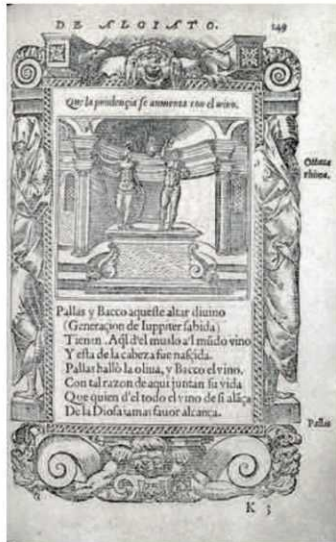 DE ALCIATO. 149
Que la prudençia se aumenta con el uino.
Ottaua
rhima.
Pallas y Bacco aqueste altar diuino
(Generaçion de Iuppiter sabida)
Tienen. Aq̃l d'el muslo a'l mũdo vino
Y esta de la cabeza fue nasçida.
Pallas hallò la oliua, y Bacco el vino.
Con tal razon de aqui juntan su vida
Que quien d'el todo el vino de si alãça
De la Diosa iamas fauor alcança.
Pallas
K 3